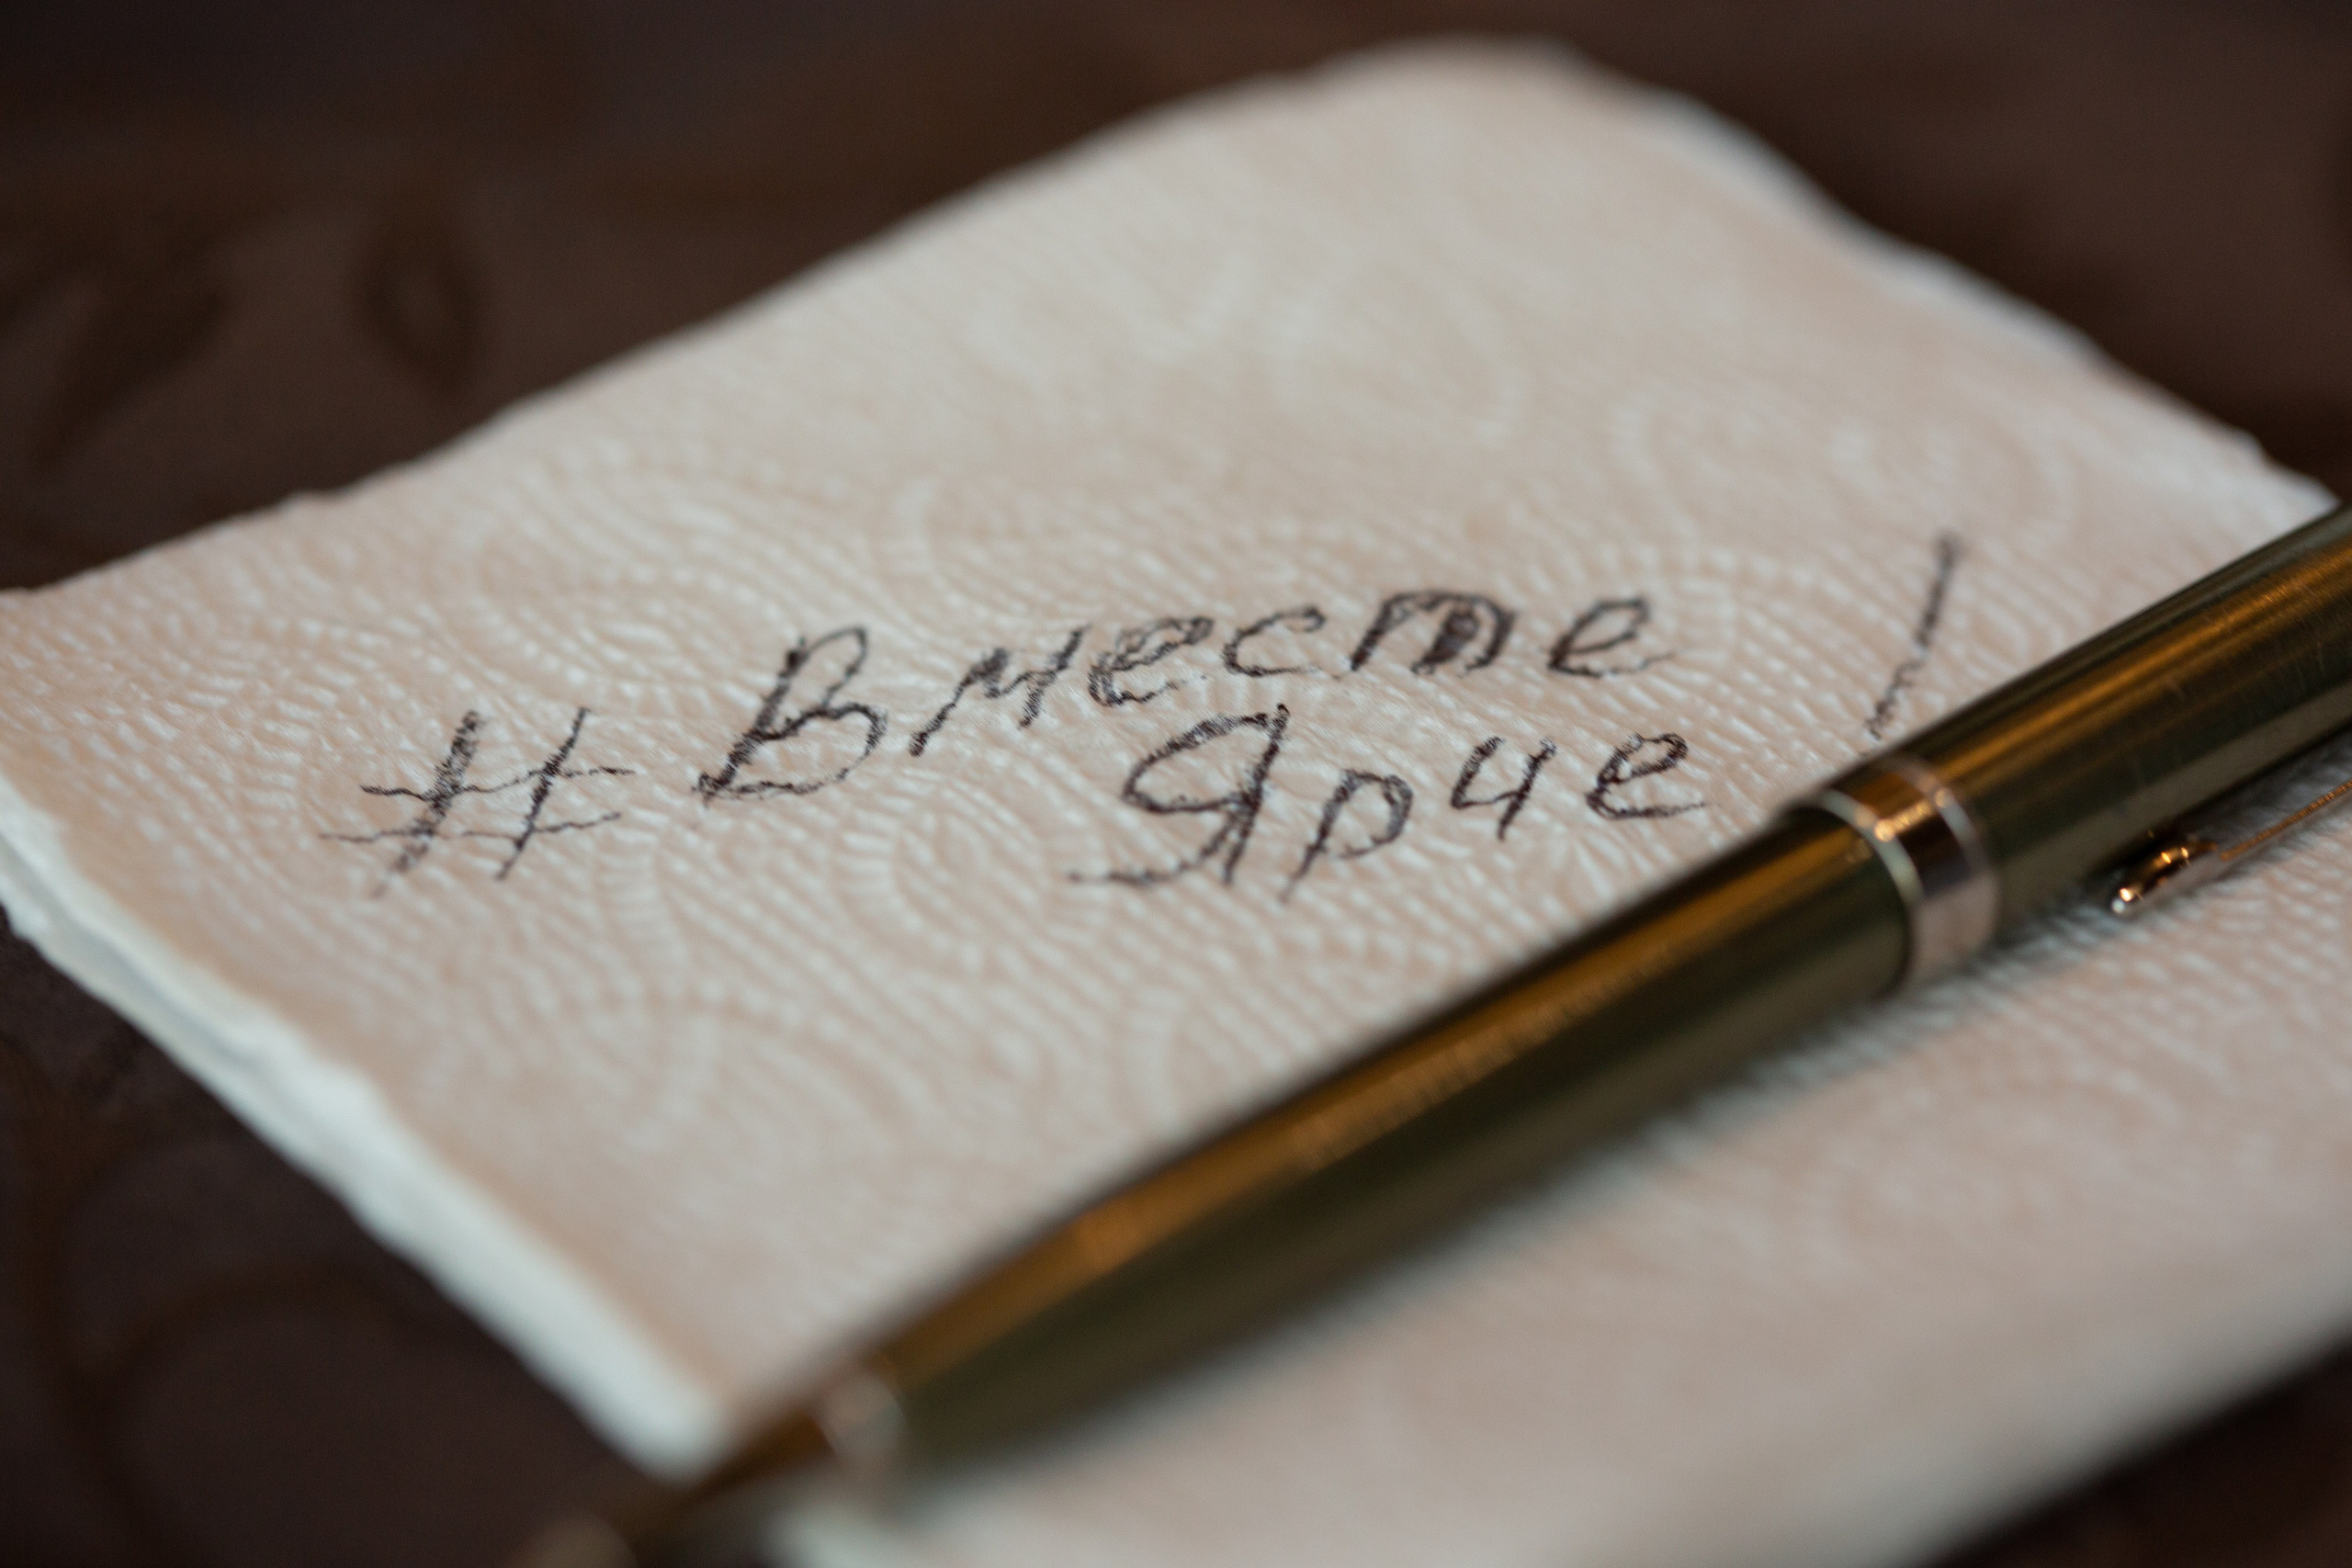 #Вместе
Ярче!